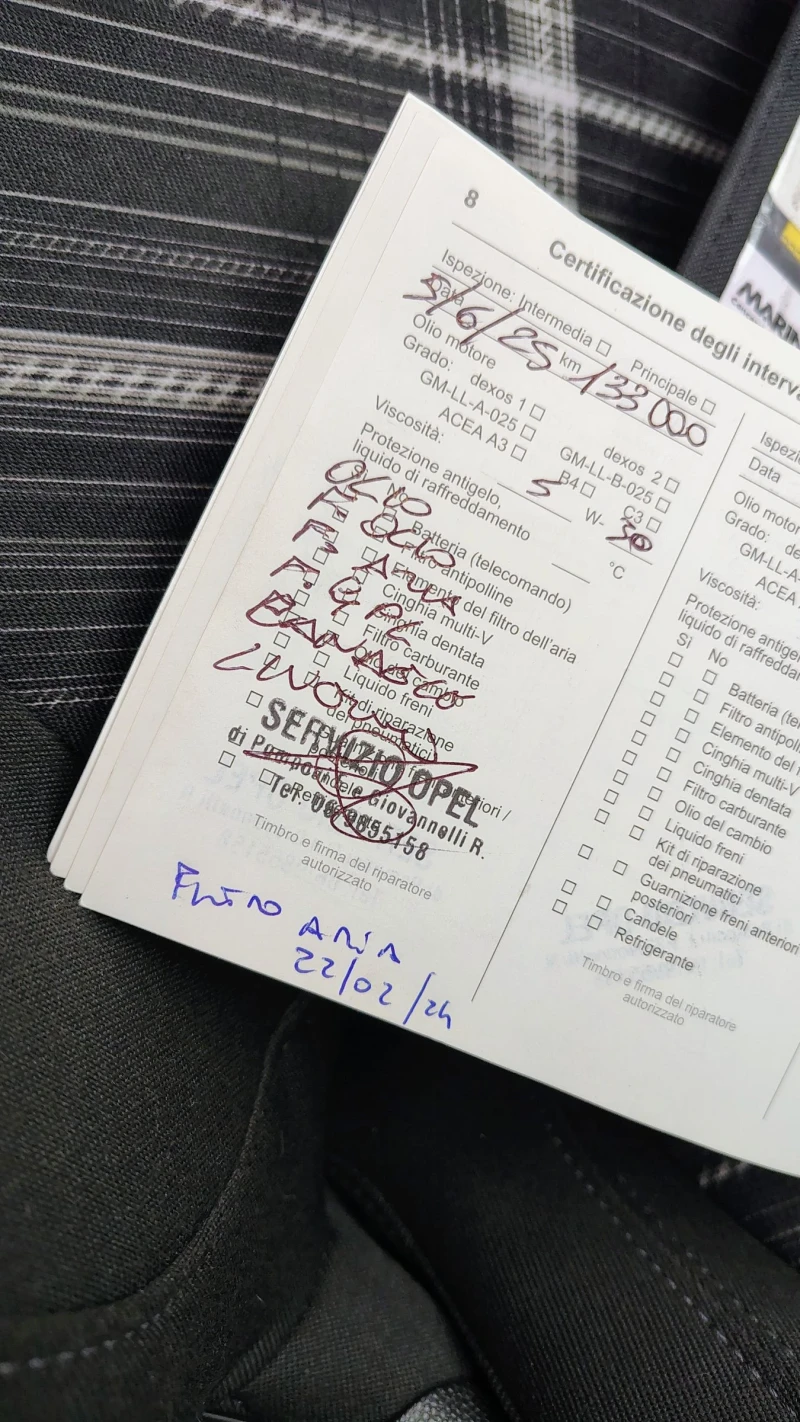 8
Certificazione degli interv
Ispezione: Intermedia Principale
Data 5/6/25 km 133000
Olio motore
Grado: dexos 1 dexos 2
GM-LL-A-025 GM-LL-B-025
ACEA A3 B4 C3
Viscosità: 5 W- 30
Protezione antigelo,
liquido di raffreddamento °C
OLIO
F. OLIO
F. ARIA
F. GPL
Batteria (telecomando)
Filtro antipolline
Elemento del filtro dell'aria
Cinghia multi-V
Cinghia dentata
Filtro carburante
Olio del cambio
Liquido freni
Kit di riparazione
dei pneumatici
SERVIZIO OPEL
Giovannelli R.
Timbro e firma del riparatore
autorizzato
FILTRO ARIA
22/02/24
Ispezi
Data
Olio motor
Grado: de
GM-LL-A
ACEA
Viscosità:
Protezione antigel
liquido di raffredda
Sì No
Batteria (tele
Filtro antipoll
Elemento del f
Cinghia multi-V
Cinghia dentata
Filtro carburante
Olio del cambio
Liquido freni
Kit di riparazione
dei pneumatici
Guarnizione freni anteriori
posteriori
Candele
Refrigerante
Timbro e firma del riparatore
autorizzato
MARIN